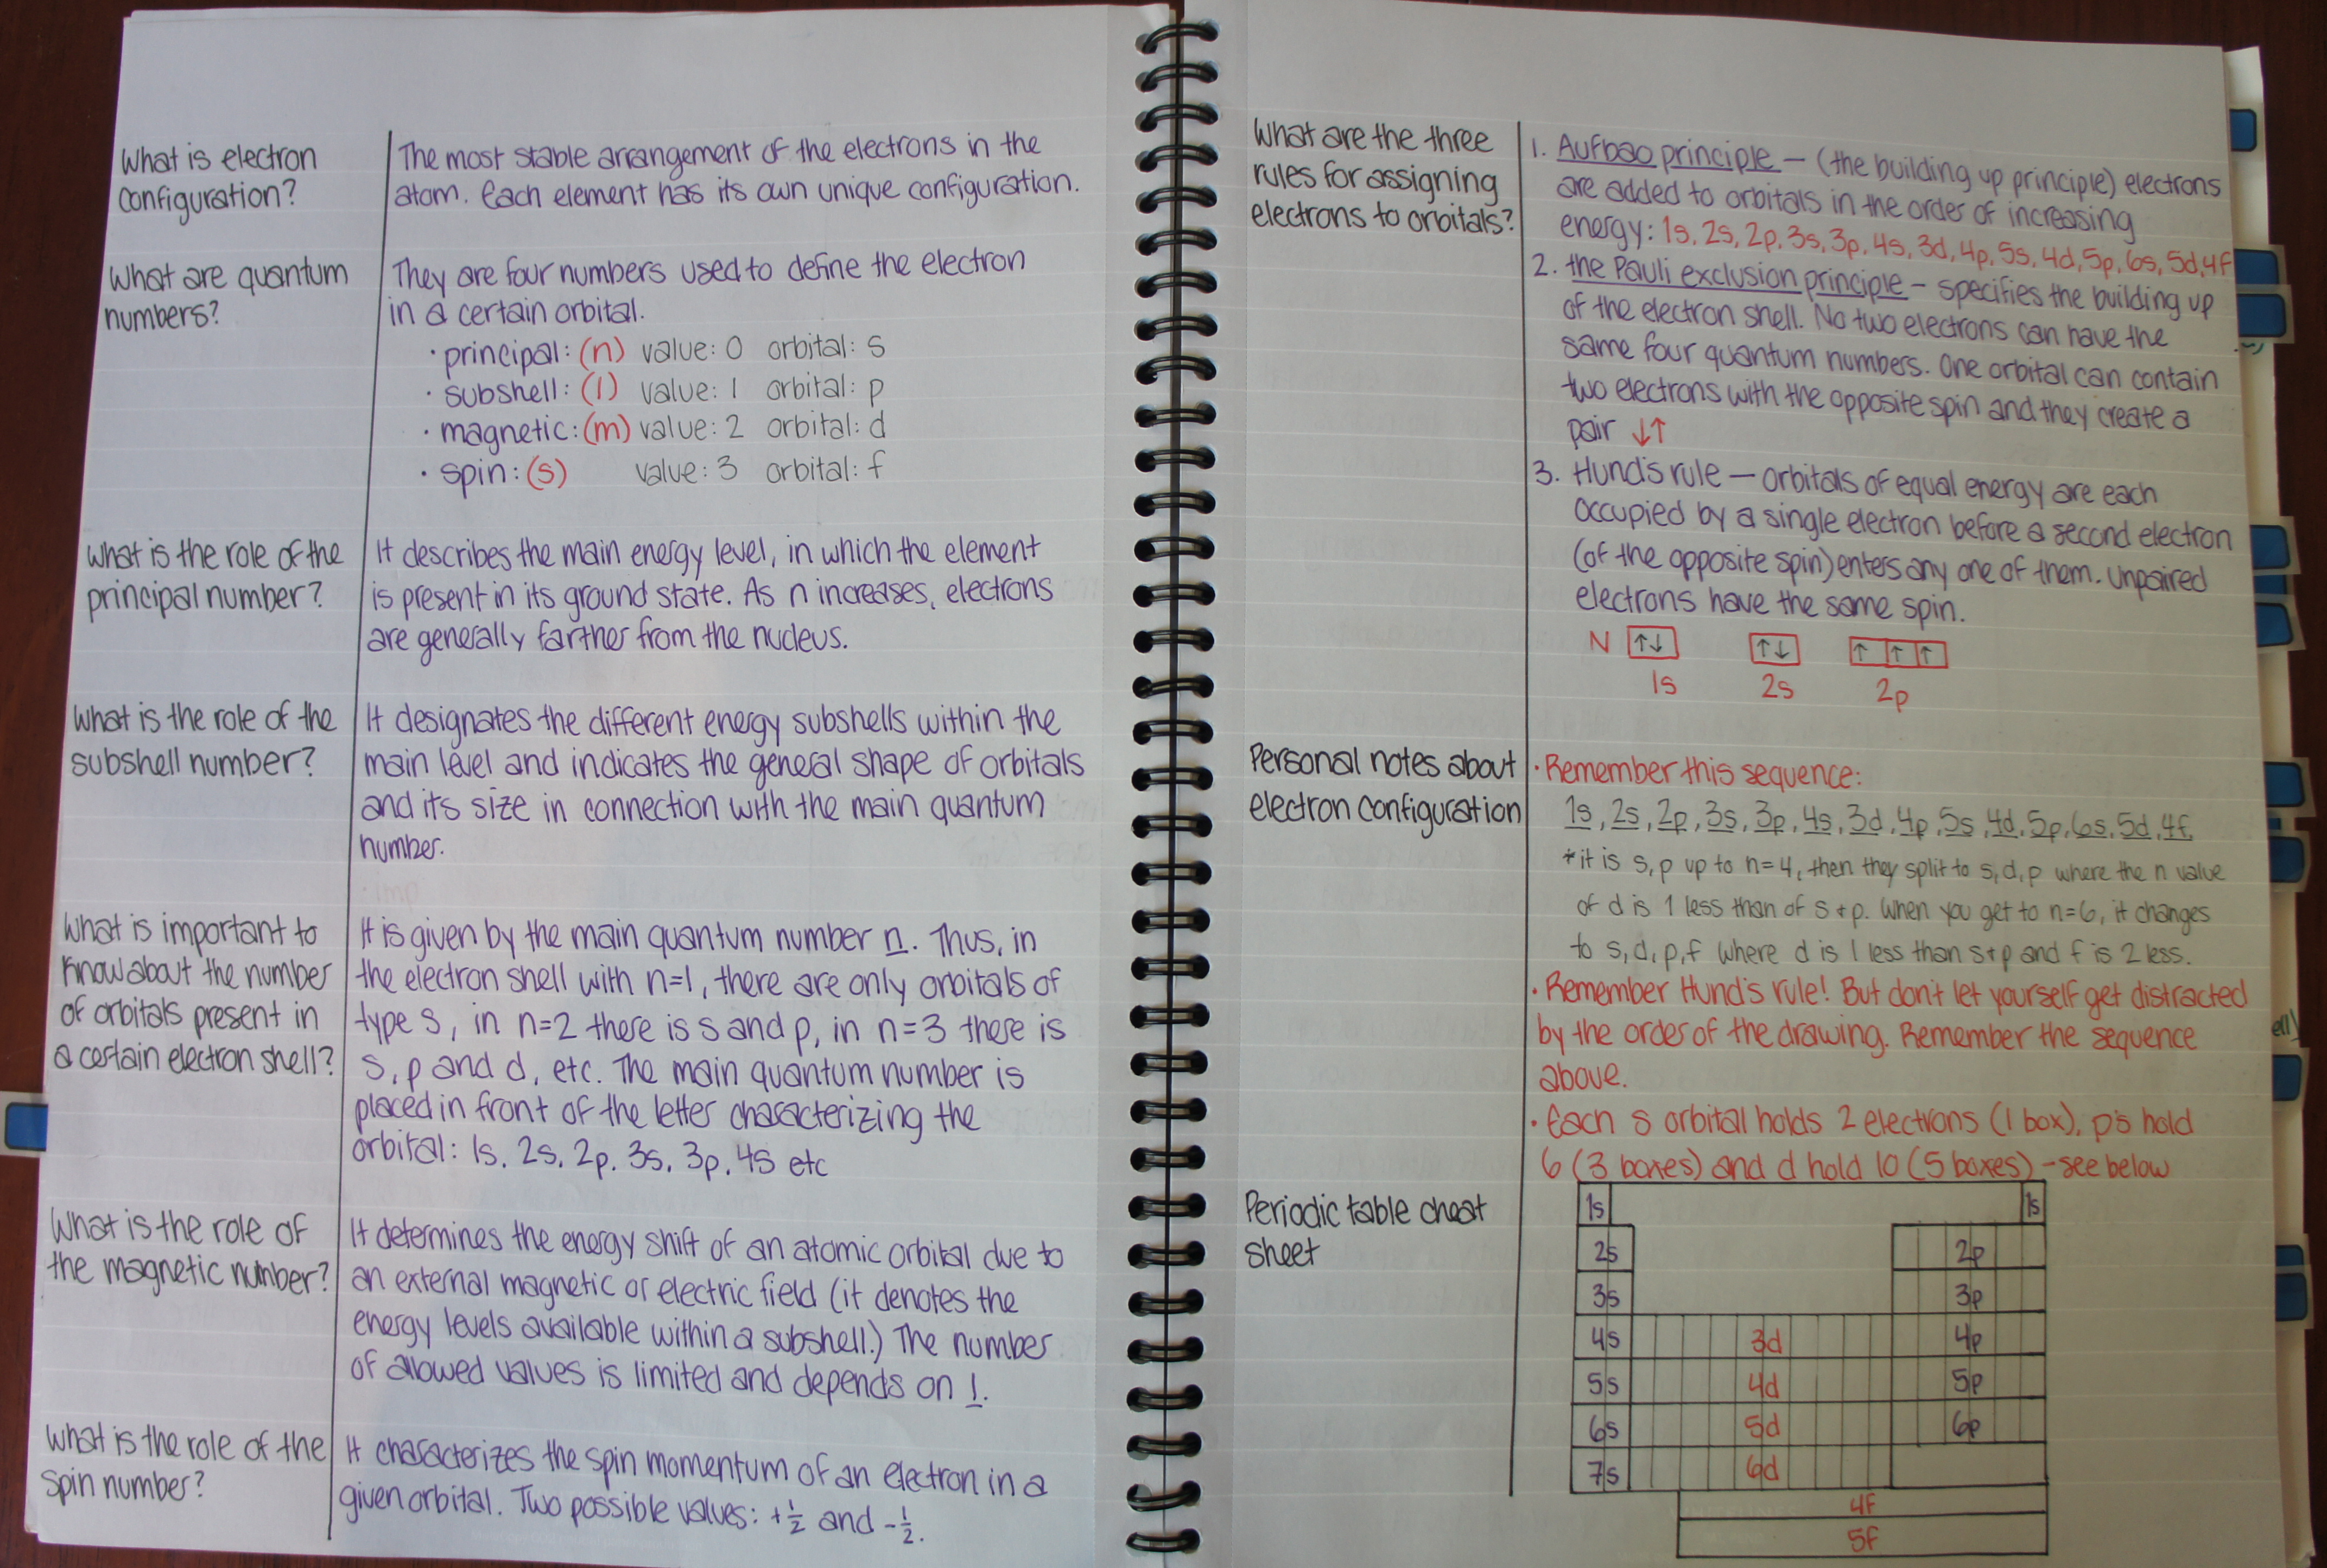 What is electron
configuration?
The most stable arrangement of the electrons in the
atom. Each element has its own unique configuration.
What are quantum
numbers?
They are four numbers used to define the electron
in a certain orbital.
· principal: (n) value: 0 orbital: s
· subshell: (l) value: 1 orbital: p
· magnetic: (m) value: 2 orbital: d
· spin: (s) value: 3 orbital: f
What is the role of the
principal number?
It describes the main energy level, in which the element
is present in its ground state. As n increases, electrons
are generally farther from the nucleus.
What is the role of the
subshell number?
It designates the different energy subshells within the
main level and indicates the general shape of orbitals
and its size in connection with the main quantum
number.
What is important to
know about the number
of orbitals present in
a certain electron shell?
It is given by the main quantum number n. Thus, in
the electron shell with n=1, there are only orbitals of
type s, in n=2 there is s and p, in n=3 there is
s, p and d, etc. The main quantum number is
placed in front of the letter characterizing the
orbital: 1s, 2s, 2p, 3s, 3p, 4s etc
What is the role of
the magnetic number?
It determines the energy shift of an atomic orbital due to
an external magnetic or electric field (it denotes the
energy levels available within a subshell.) The number
of allowed values is limited and depends on l.
What is the role of the
spin number?
It characterizes the spin momentum of an electron in a
given orbital. Two possible values: +½ and -½.
What are the three
rules for assigning
electrons to orbitals?
1. Aufbao principle — (the building up principle) electrons
are added to orbitals in the order of increasing
energy: 1s, 2s, 2p, 3s, 3p, 4s, 3d, 4p, 5s, 4d, 5p, 6s, 5d, 4f
2. the Pauli exclusion principle — specifies the building up
of the electron shell. No two electrons can have the
same four quantum numbers. One orbital can contain
two electrons with the opposite spin and they create a
pair ↓↑
3. Hund's rule — orbitals of equal energy are each
occupied by a single electron before a second electron
(of the opposite spin) enters any one of them. Unpaired
electrons have the same spin.
N ↑↓ ↑↓ ↑ ↑ ↑
1s 2s 2p
Personal notes about
electron configuration
· Remember this sequence:
1s, 2s, 2p, 3s, 3p, 4s, 3d, 4p, 5s, 4d, 5p, 6s, 5d, 4f,
*it is s, p up to n=4, then they split to s, d, p where the n value
of d is 1 less than of s + p. When you get to n=6, it changes
to s, d, p, f where d is 1 less than s + p and f is 2 less.
· Remember Hund's rule! But don't let yourself get distracted
by the order of the drawing. Remember the sequence
above.
· Each s orbital holds 2 electrons (1 box), p's hold
6 (3 boxes) and d hold 10 (5 boxes) - see below
Periodic table cheat
sheet
1s 1s
2s 2p
3s 3p
4s 3d 4p
5s 4d 5p
6s 5d 6p
7s 6d
4f
5f